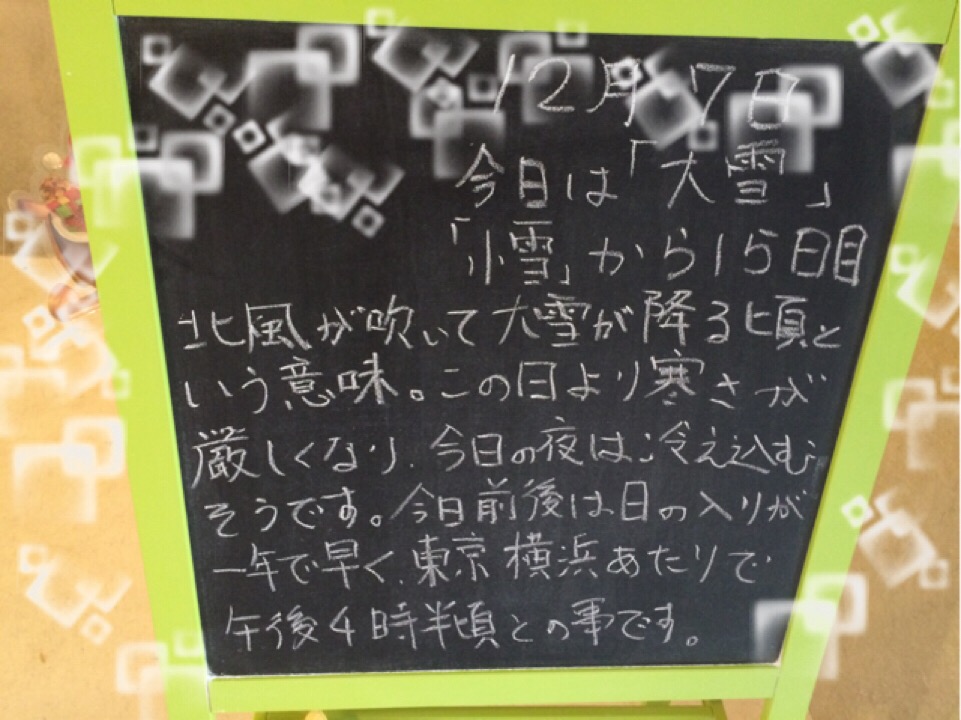 12月7日
今日は「大雪」
「小雪」から15日目
北風が吹いて大雪が降る頃と
いう意味。この日より寒さが
厳しくなり、今日の夜は冷え込む
そうです。今日前後は日の入りが
一年で早く、東京横浜あたりで
午後4時半頃との事です。